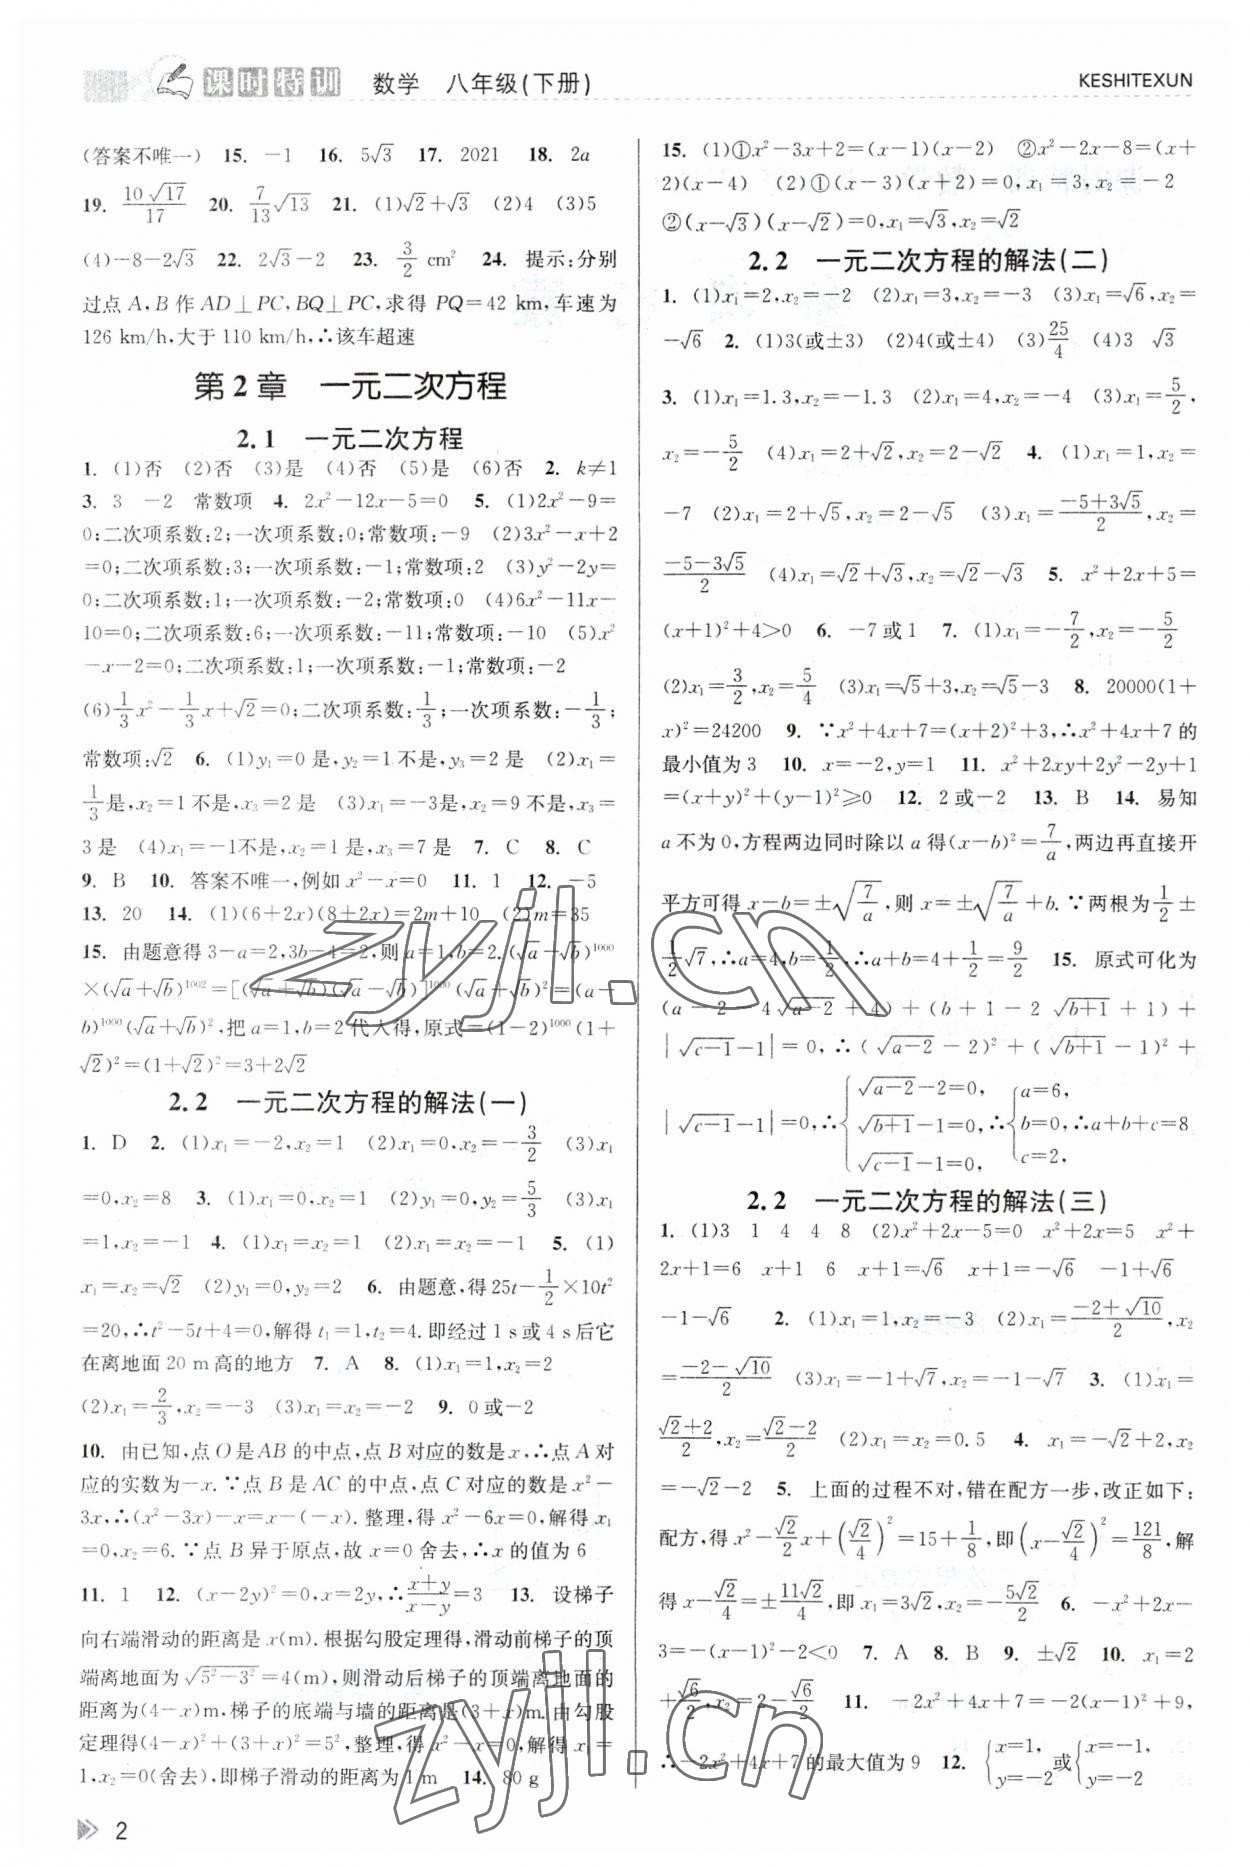 课时特训 数学 八年级(下册)
KESHITEXUN
(答案不唯一) 15. -1 16. 5√3 17. 2021 18. 2a
19. 10√17/17 20. 7/13√13 21. (1)√2+√3 (2)4 (3)5
(4)-8-2√3 22. 2√3-2 23. 3/2 cm² 24. 提示:分别
过点A,B作AD⊥PC,BQ⊥PC,求得PQ=42 km,车速为
126 km/h,大于110 km/h,∴该车超速
第2章 一元二次方程
2.1 一元二次方程
1. (1)否 (2)否 (3)是 (4)否 (5)是 (6)否 2. k≠1
3. 3 -2 常数项 4. 2x²-12x-5=0 5. (1)2x²-9=
0;二次项系数:2;一次项系数:0;常数项:-9 (2)3x²-x+2
=0;二次项系数:3;一次项系数:-1;常数项:2 (3)y²-2y=
0;二次项系数:1;一次项系数:-2;常数项:0 (4)6x²-11x-
10=0;二次项系数:6;一次项系数:-11;常数项:-10 (5)x²
-x-2=0;二次项系数:1;一次项系数:-1;常数项:-2
(6)1/3x²-1/3x+√2=0;二次项系数:1/3;一次项系数:-1/3;
常数项:√2 6. (1)y₁=0是,y₂=1不是,y₃=2是 (2)x₁=
1/3是,x₂=1不是,x₃=2是 (3)x₁=-3是,x₂=9不是,x₃=
3是 (4)x₁=-1不是,x₂=1是,x₃=7是 7. C 8. C
9. B 10. 答案不唯一,例如x²-x=0 11. 1 12. -5
13. 20 14. (1)(6+2x)(8+2x)=2m+10 (2)m=35
15. 由题意得3-a=2,3b-4=2,则a=1,b=2. (√a-√b)¹⁰⁰⁰
×(√a+√b)¹⁰⁰²=[(√a+√b)(√a-√b)]¹⁰⁰⁰(√a+√b)²=(a-
b)¹⁰⁰⁰(√a+√b)²,把a=1,b=2代入得,原式=(1-2)¹⁰⁰⁰(1+
√2)²=(1+√2)²=3+2√2
2.2 一元二次方程的解法(一)
1. D 2. (1)x₁=-2,x₂=1 (2)x₁=0,x₂=-3/2 (3)x₁
=0,x₂=8 3. (1)x₁=0,x₂=1 (2)y₁=0,y₂=5/3 (3)x₁
=1,x₂=-1 4. (1)x₁=x₂=1 (2)x₁=x₂=-1 5. (1)
x₁=x₂=√2 (2)y₁=0,y₂=2 6. 由题意,得25t-1/2×10t²
=20,∴t²-5t+4=0,解得t₁=1,t₂=4.即经过1 s或4 s后它
在离地面20 m高的地方 7. A 8. (1)x₁=1,x₂=2
(2)x₁=2/3,x₂=-3 (3)x₁=x₂=-2 9. 0或-2
10. 由已知,点O是AB的中点,点B对应的数是x,∴点A对
应的实数为-x.∵点B是AC的中点,点C对应的数是x²-
3x,∴(x²-3x)-x=x-(-x).整理,得x²-6x=0,解得x₁
=0,x₂=6.∵点B异于原点,故x=0舍去,∴x的值为6
11. 1 12. (x-2y)²=0,x=2y,∴(x+y)/(x-y)=3 13. 设梯子
向右端滑动的距离是x(m).根据勾股定理得,滑动前梯子的顶
端离地面为√(5²-3²)=4(m),则滑动后梯子的顶端离地面的
距离为(4-x)m,梯子的底端与墙的距离是(3+x)m.由勾股
定理得(4-x)²+(3+x)²=5²,整理,得x²-x=0,解得x₁=
1,x₂=0(舍去),即梯子滑动的距离为1 m 14. 80 g
2
15. (1)①x²-3x+2=(x-1)(x-2) ②x²-2x-8=(x+
2)(x-4) (2)①(x-3)(x+2)=0,x₁=3,x₂=-2
②(x-√3)(x-√2)=0,x₁=√3,x₂=√2
2.2 一元二次方程的解法(二)
1. (1)x₁=2,x₂=-2 (2)x₁=3,x₂=-3 (3)x₁=√6,x₂=
-√6 2. (1)3(或±3) (2)4(或±4) (3)25/4 (4)3 √3
3. (1)x₁=1.3,x₂=-1.3 (2)x₁=4,x₂=-4 (3)x₁=5/2,
x₂=-5/2 (4)x₁=2+√2,x₂=2-√2 4. (1)x₁=1,x₂=
-7 (2)x₁=2+√5,x₂=2-√5 (3)x₁=(-5+3√5)/2,x₂=
(-5-3√5)/2 (4)x₁=√2+√3,x₂=√2-√3 5. x²+2x+5=
(x+1)²+4>0 6. -7或1 7. (1)x₁=-7/2,x₂=-5/2
(2)x₁=3/2,x₂=5/4 (3)x₁=√5+3,x₂=√5-3 8. 20000(1+
x)²=24200 9. ∵x²+4x+7=(x+2)²+3,∴x²+4x+7的
最小值为3 10. x=-2,y=1 11. x²+2xy+2y²-2y+1
=(x+y)²+(y-1)²≥0 12. 2或-2 13. B 14. 易知
a不为0,方程两边同时除以a得(x-b)²=7/a,两边再直接开
平方可得x-b=±√(7/a),则x=±√(7/a)+b.∵两根为1/2±
1/2√7,∴a=4,b=1/2,∴a+b=4+1/2=9/2 15. 原式可化为
(a-2-4√(a-2)+4)+(b+1-2√(b+1)+1)+
|√(c-1)-1|=0,∴(√(a-2)-2)²+(√(b+1)-1)²+
|√(c-1)-1|=0,∴{√(a-2)-2=0, √(b+1)-1=0, √(c-1)-1=0, ∴{a=6, b=0, c=2, ∴a+b+c=8
2.2 一元二次方程的解法(三)
1. (1)3 1 4 4 8 (2)x²+2x-5=0 x²+2x=5 x²+
2x+1=6 x+1 6 x+1=√6 x+1=-√6 -1+√6
-1-√6 2. (1)x₁=1,x₂=-3 (2)x₁=(-2+√10)/2,x₂
=(-2-√10)/2 (3)x₁=-1+√7,x₂=-1-√7 3. (1)x₁=
(√2+2)/2,x₂=(√2-2)/2 (2)x₁=x₂=0.5 4. x₁=-√2+2,x₂
=-√2-2 5. 上面的过程不对,错在配方一步,改正如下:
配方,得x²-√2/2x+(√2/4)²=15+1/8,即(x-√2/4)²=121/8,解
得x-√2/4=±11√2/4,即x₁=3√2,x₂=-5√2/2 6. -x²+2x-
3=-(x-1)²-2<0 7. A 8. B 9. ±√2 10. x₁=2
+√6/2,x₂=2-√6/2 11. -2x²+4x+7=-2(x-1)²+9,
∴-2x²+4x+7的最大值为9 12. {x=1, y=-2 或{x=-1, y=-2
zyjl.cn
zyjl.cn